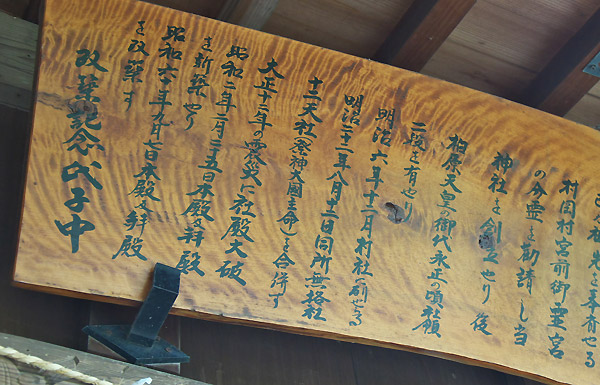 己等祖先を奉斉せる
村岡村宮前御霊宮
の分霊を勧請し当
神社を創立せり 後
柏原天皇の御代永正の頃社領
二段を有せり
明治六年十二月村社に列せらる
明治四十二年八月十二日同所無格社
十二天社(祭神大國主命)を合併す
大正十二年の震災に社殿大破
昭和二年二月二十五日本殿及拝殿
を新築せり
昭和六十年九月七日本殿及拝殿
を改築す
改築記念氏子中